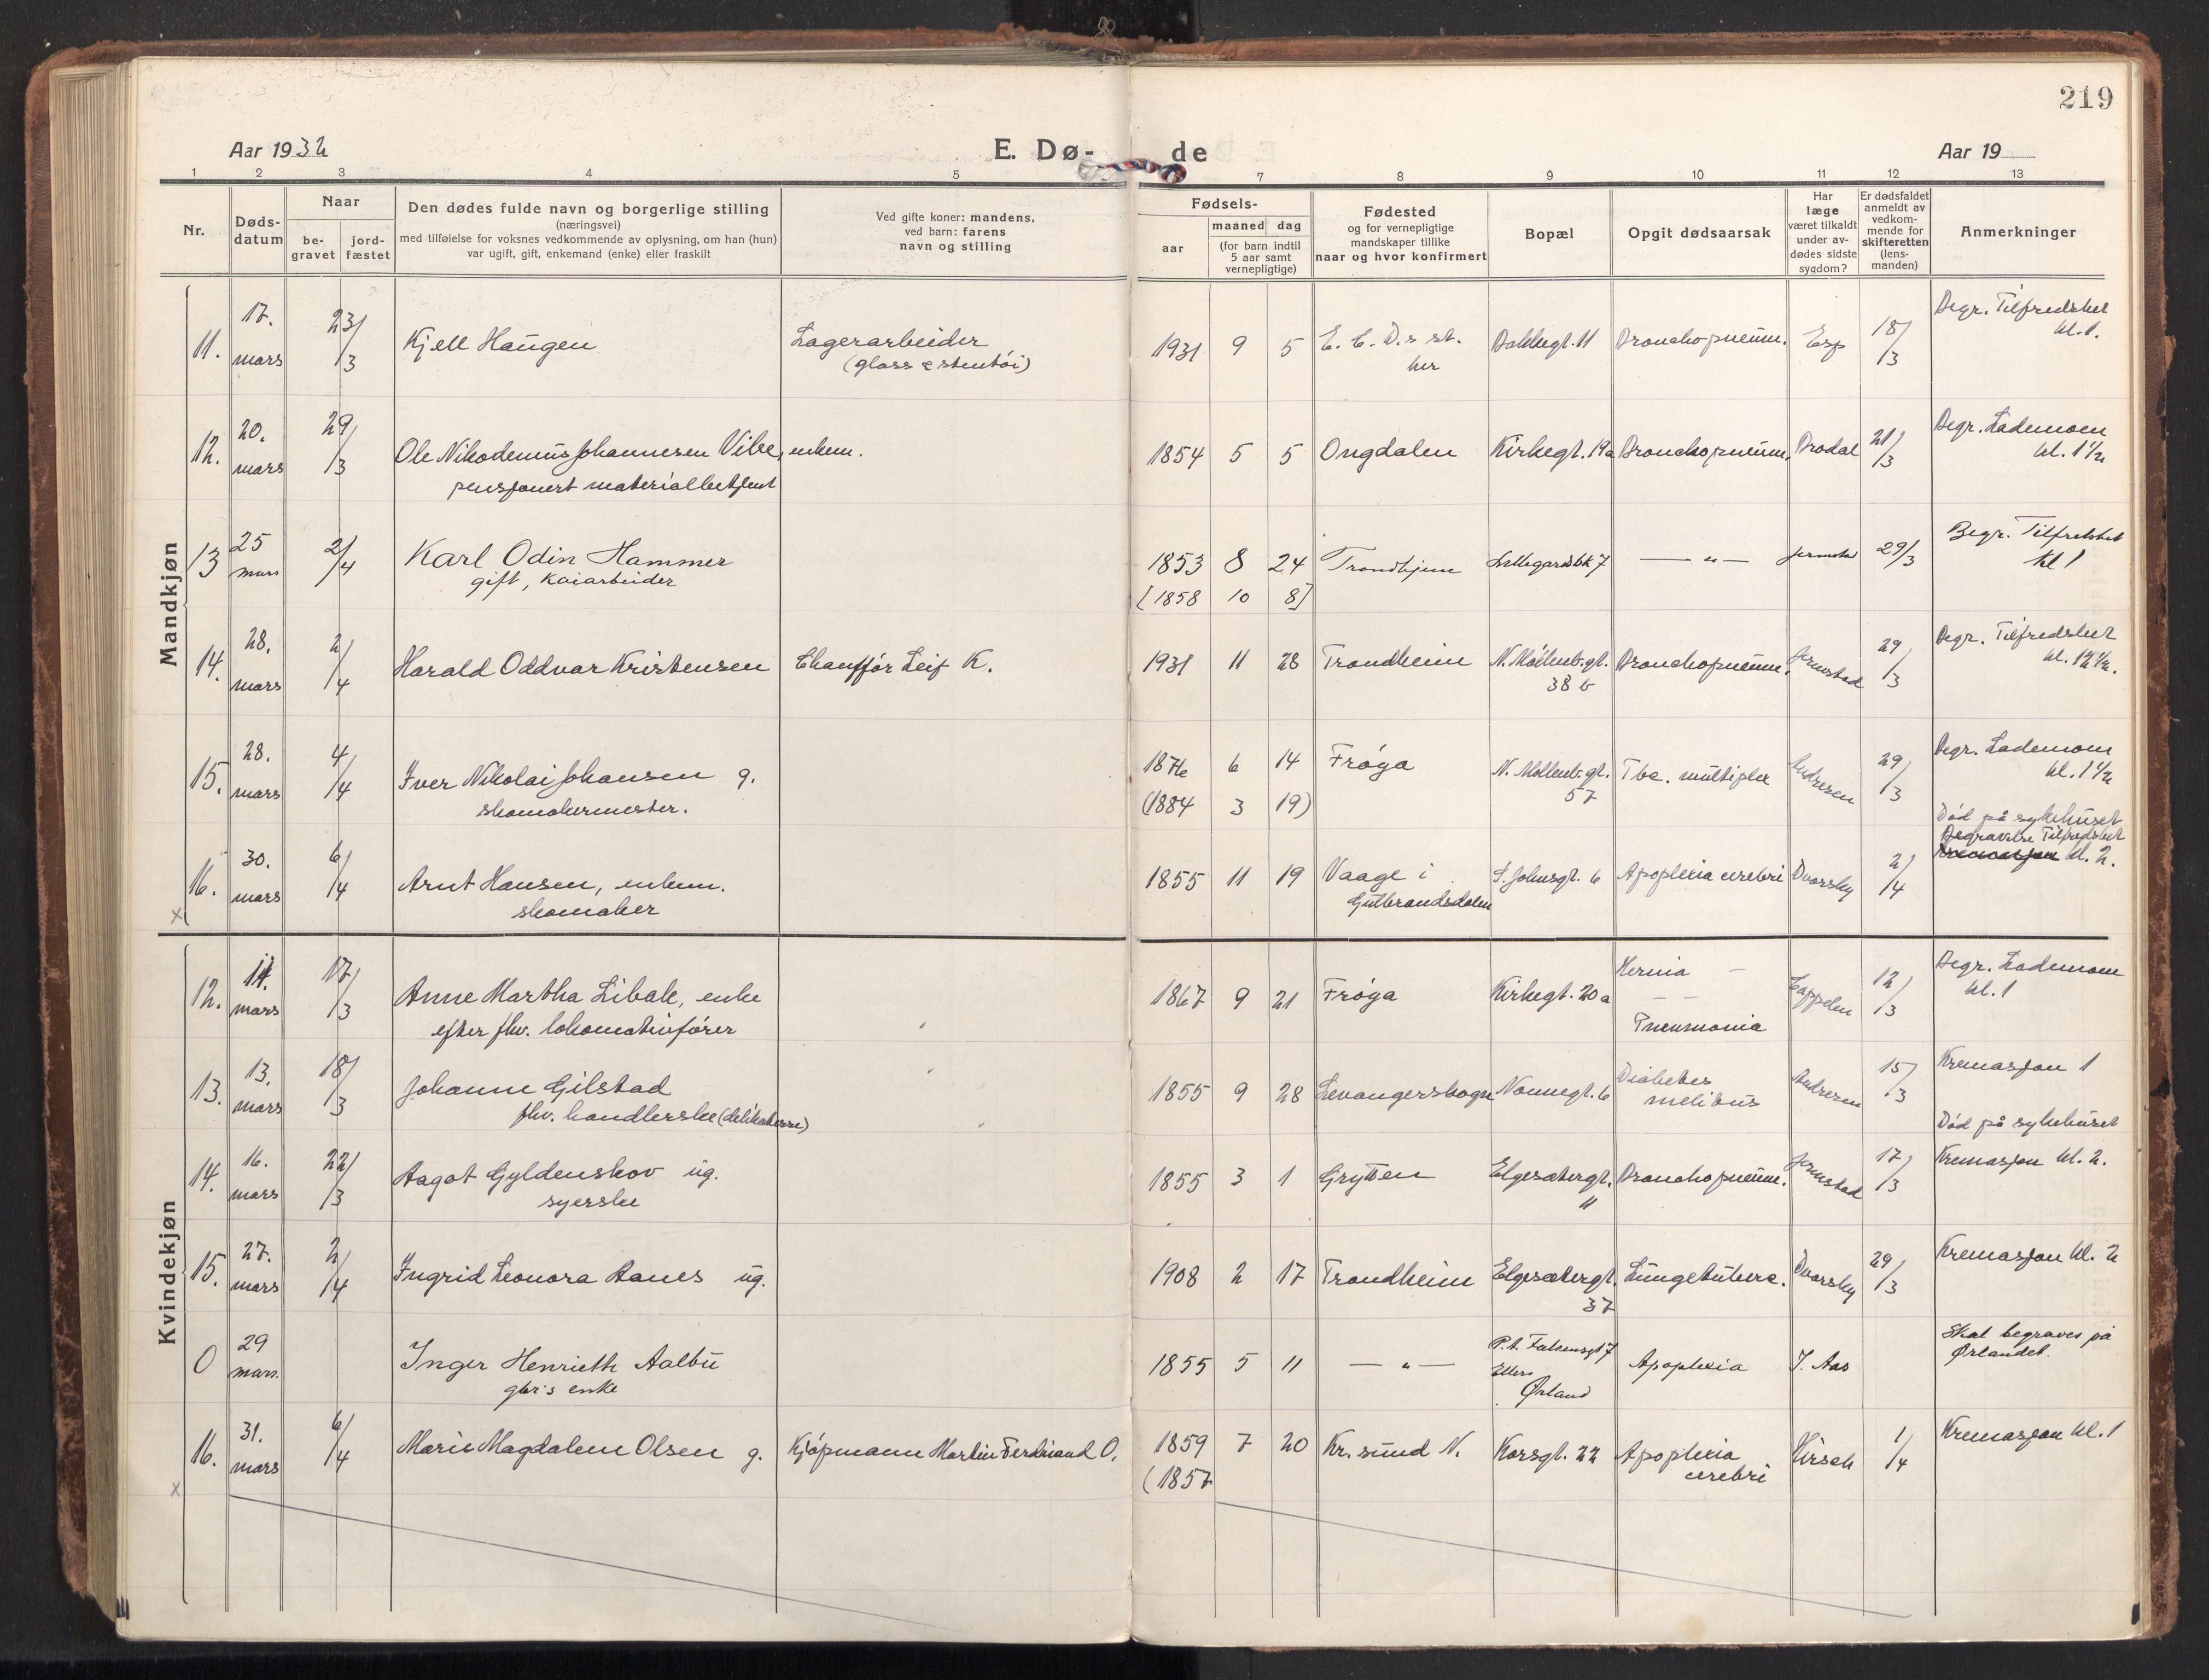 219
Aar 1932
E. Dø-
de
Aar 19
1 2 3 4 5 7 8 9 10 11 12 13
Nr.
Døds-
datum
Naar
be-
gravet
jord-
fæstet
Den dødes fulde navn og borgerlige stilling
(næringsvei)
med tilføielse for voksnes vedkommende av oplysning, om han (hun)
var ugift, gift, enkemand (enke) eller fraskilt
Ved gifte koner: mandens,
ved barn: farens
navn og stilling
Fødsels-
aar
maaned dag
(for barn indtil
5 aar samt
vernepligtige)
Fødested
og for vernepligtige
mandskaper tillike
naar og hvor konfirmert
Bopæl
Opgit dødsaarsak
Har
læge
været tilkaldt
under av-
dødes sidste
sygdom?
Er dødsfaldet
anmeldt av
vedkom-
mende for
skifteretten
(lens-
manden)
Anmerkninger
Mandkjøn
11. 17. mars 23/3 Kjell Haugen Lagerarbeider 1931 9 5 E. C. D.s st. Bakkegt. 11 Bronchopneum. Esp 18/3 Begr. Tilfredshet
(glass & stentøi) her kl. 1.
12. 20. mars 29/3 Ole Nikodemus Johannesen Vibe, enkem. 1854 5 5 Ongdalen Kirkegt. 19a Bronchopneum. Brodal 21/3 Begr. Lademoen
pensjonert materialbetjent kl. 1½
13 25 mars 2/4 Karl Odin Hammer 1853 8 24 Trondhjem Lillegårdsbk 7 — " — Jermstad 29/3 Begr. Tilfredshet
gift, kaiarbeider kl 1
[1858 10 8]
14. 28. mars 2/4 Harald Oddvar Kristensen Chauffør Leif K. 1931 11 28 Trondheim N. Møllenb.gt. Bronchopneum. Jermstad 29/3 Begr. Tilfredshet
38 b kl. 12½.
15. 28. mars 4/4 Iver Nikolai Johansen g. 1876 6 14 Frøya N. Møllenb.gt. Tbc. multiplex Andresen 29/3 Begr. Lademoen
skomakermester. (1884 3 19) 57 kl. 1½
Død på sykehuset
16. 30. mars 6/4 Arnt Hansen, enkem. 1855 11 19 Vaage i St. Johnsgt. 6 Apoplexia cerebri Dvorsky 2/4 Begravelse Tilfredshet
× skomaker Gutbrandsdalen Kremasjon kl. 2.
Kvindekjøn
12. 11. mars 17/3 Anne Martha Libak, enke 1867 9 21 Frøya Kirkegt. 20a Hernia — Cappelen 12/3 Begr. Lademoen
efter fhv. lokomotivfører — — kl. 1
Pneumonia
13. 13. mars 18/3 Johanne Gilstad 1855 9 28 Levangerskogn Nonnegt. 6 Diabetes Andresen 15/3 Kremasjon 1
fhv. handlerske (delikatesse) melitus
Død på sykehuset
14. 16. mars 22/3 Aagot Gyldenskov ug. 1855 3 1 Grytten Elgesætergt. Bronchopneum. Jermstad 17/3 Kremasjon kl. 2.
syerske 11
15. 27. mars 2/4 Ingrid Leonora Aanes ug. 1908 2 17 Trondheim Elgesætergt. Lungetuberc. Dvorsky 29/3 Kremasjon kl. 2
37
0 29 mars. Inger Henriette Aalbu 1855 5 11 — " — P.t. Falsensgt 7 Apoplexia I. Aas Skal begraves på
gbr's enke Ellers Ørland Ørlandet.
16. 31. mars 6/4 Marie Magdalene Olsen g. Kjøpmann Martin Ferdinand O. 1859 7 20 Kr. sund N. Korsgt. 22 Apoplexia Hirsch 1/4 Kremasjon kl. 1
× (1857 cerebri